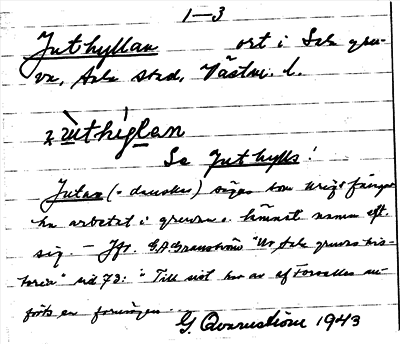 1-3
Juthyllan ort i Sala gru-
va, Sala stad, Västm. l.
ʒùthíglan
Se Juthylls!
Jutar (= danskar) säges som krigsfångar
ha arbetat i gruvan o. lämnat namn eft.
sig. - Jfr. G.A. Granström "Ur Sala gruvas his-
toria" sid 73: "Till sist har av af Forselles an-
förts en föreningen
G. Qvarnström 1943